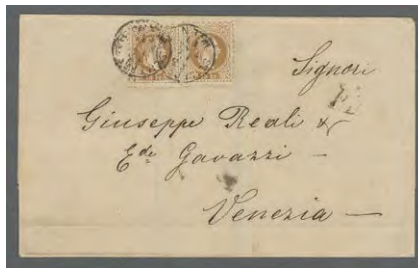 Signori
Giuseppe Reali &
Ede Gavazzi –
Venezia –